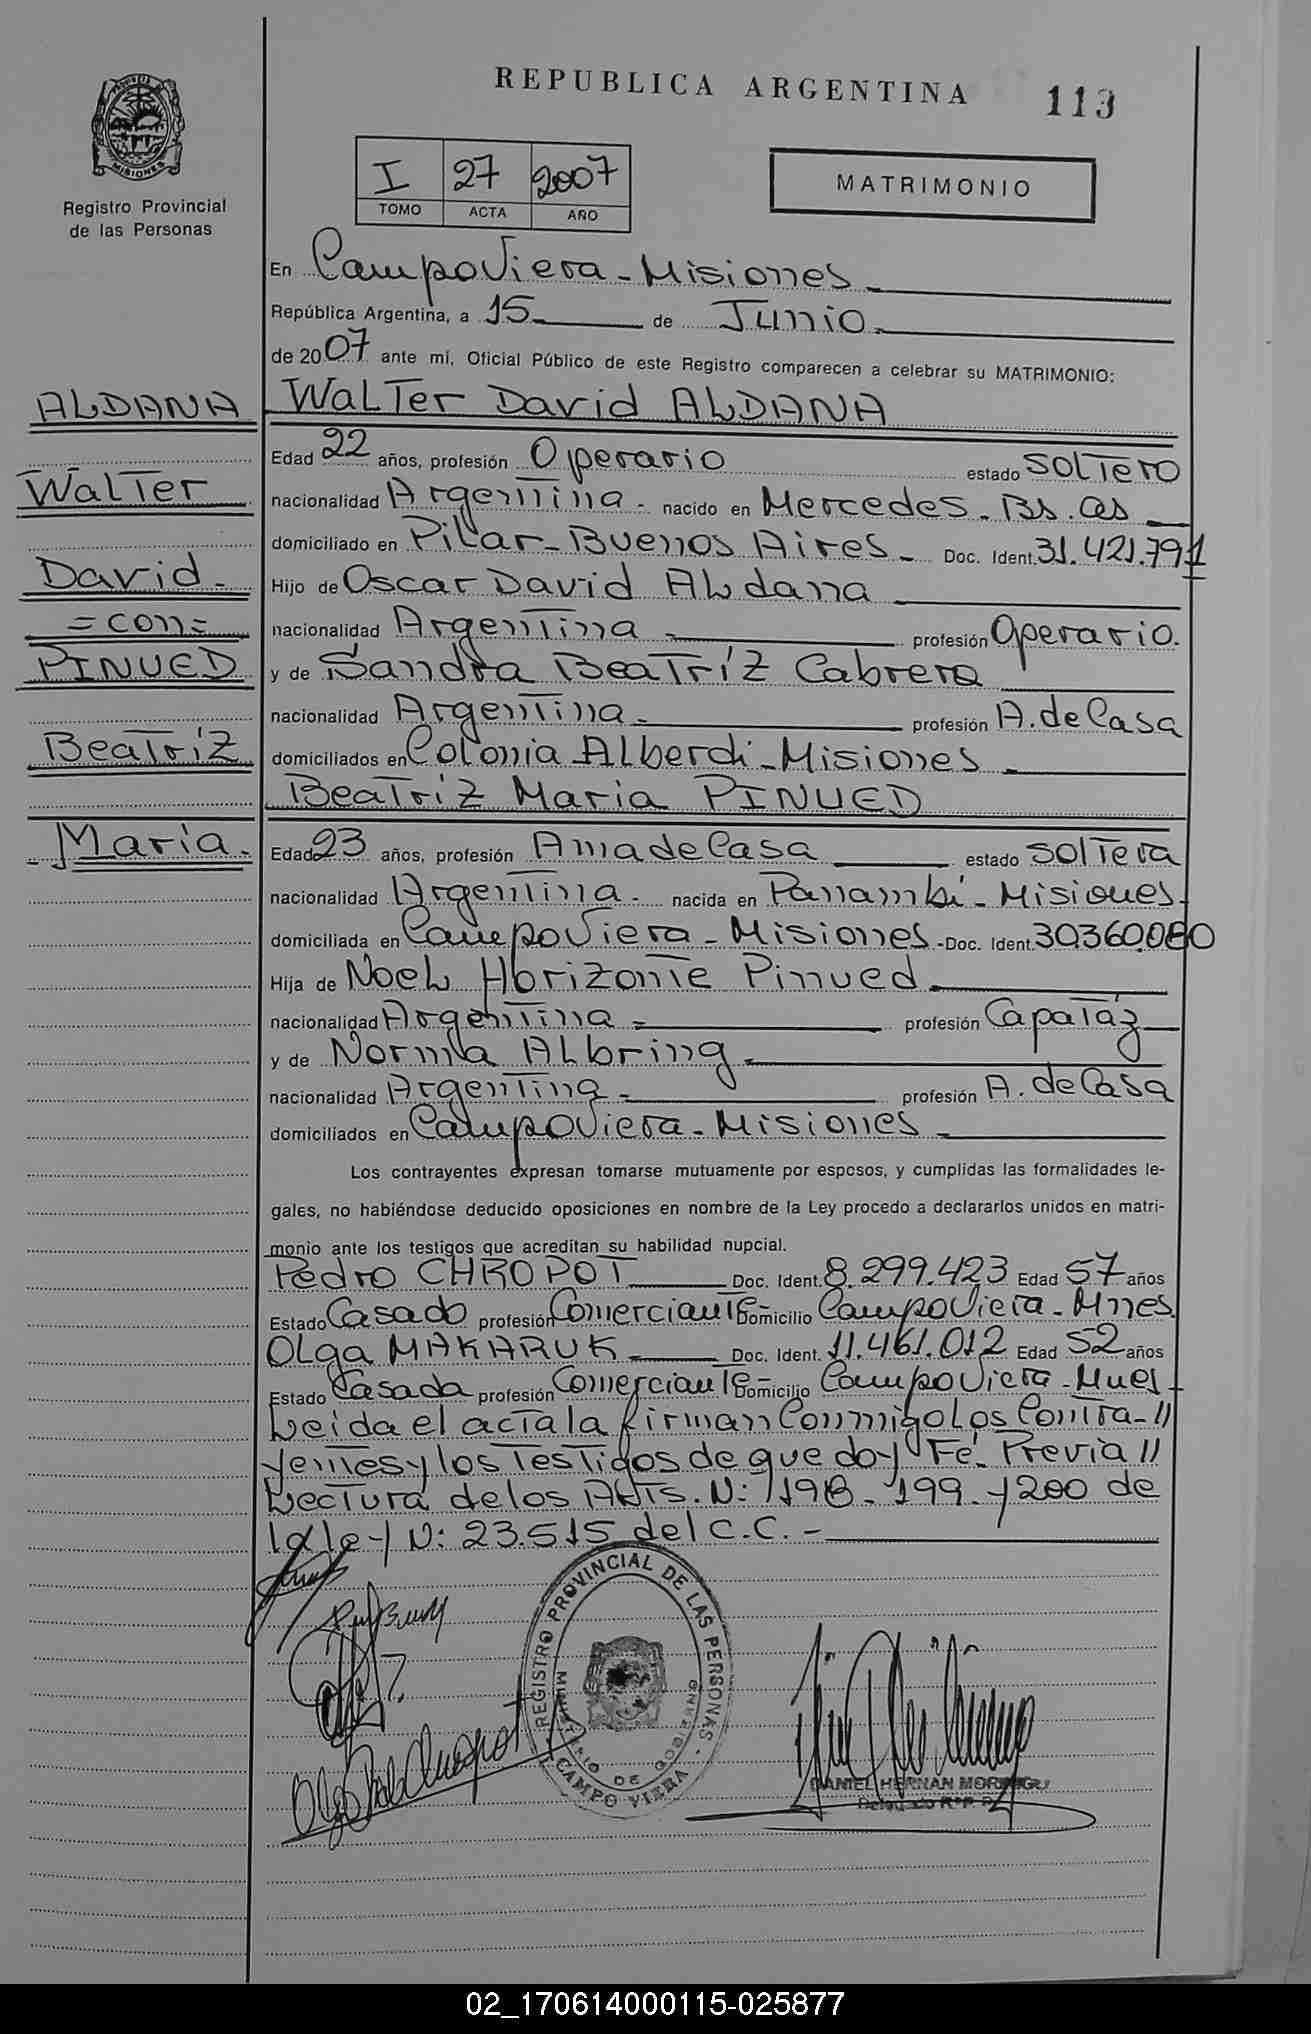 REPUBLICA ARGENTINA
113
MISIONES
Registro Provincial
de las Personas
I 27 2007
TOMO ACTA AÑO
MATRIMONIO
En Campo Viera - Misiones.
República Argentina, a 15 de Junio.
de 2007 ante mí, Oficial Público de este Registro comparecen a celebrar su MATRIMONIO:
ALDANA
Walter
David.
= con =
PINUED
Beatriz
Maria.
Walter David ALDANA
Edad 22 años, profesión Operario estado Soltero
nacionalidad Argentina. nacido en Mercedes. Bs. as
domiciliado en Pilar - Buenos Aires - Doc. Ident. 31.421.791
Hijo de Oscar David Aldana
nacionalidad Argentina - profesión Operario.
y de Sandra Beatríz Cabrera
nacionalidad Argentina. profesión A. de Casa
domiciliados en Colonia Alberdi - Misiones
Beatriz Maria PINUED
Edad 23 años, profesión Ama de Casa estado Soltera
nacionalidad Argentina. nacida en Panambí - Misiones
domiciliada en Campo Viera - Misiones - Doc. Ident. 30.360.080
Hija de Noel Horizonte Pinued
nacionalidad Argentina profesión Capatáz
y de Norma Albring
nacionalidad Argentina profesión A. de Casa
domiciliados en Campo Viera - Misiones
Los contrayentes expresan tomarse mutuamente por esposos, y cumplidas las formalidades le-
gales, no habiéndose deducido oposiciones en nombre de la Ley procedo a declararlos unidos en matri-
monio ante los testigos que acreditan su habilidad nupcial.
Pedro CHROPOT Doc. Ident. 8.299.423 Edad 57 años
Estado Casado profesión Comerciante - Domicilio Campo Viera - Mnes
Olga MAKARUK Doc. Ident. 11.461.012 Edad 52 años
Estado Casada profesión Comerciante - Domicilio Campo Viera - Mnes
Leida el acta la firman Conmigo Los Contra-//
yentes y los Testigos de que doy Fé. Previa //
Lectura de los Arts. N: 198 - 199 - y 200 de
la ley N: 23.515 del C.C. -
REGISTRO PROVINCIAL DE LAS PERSONAS
MINISTERIO DE GOBIERNO
CAMPO VIERA
DANIEL HERNAN
Delegado
02_170614000115-025877